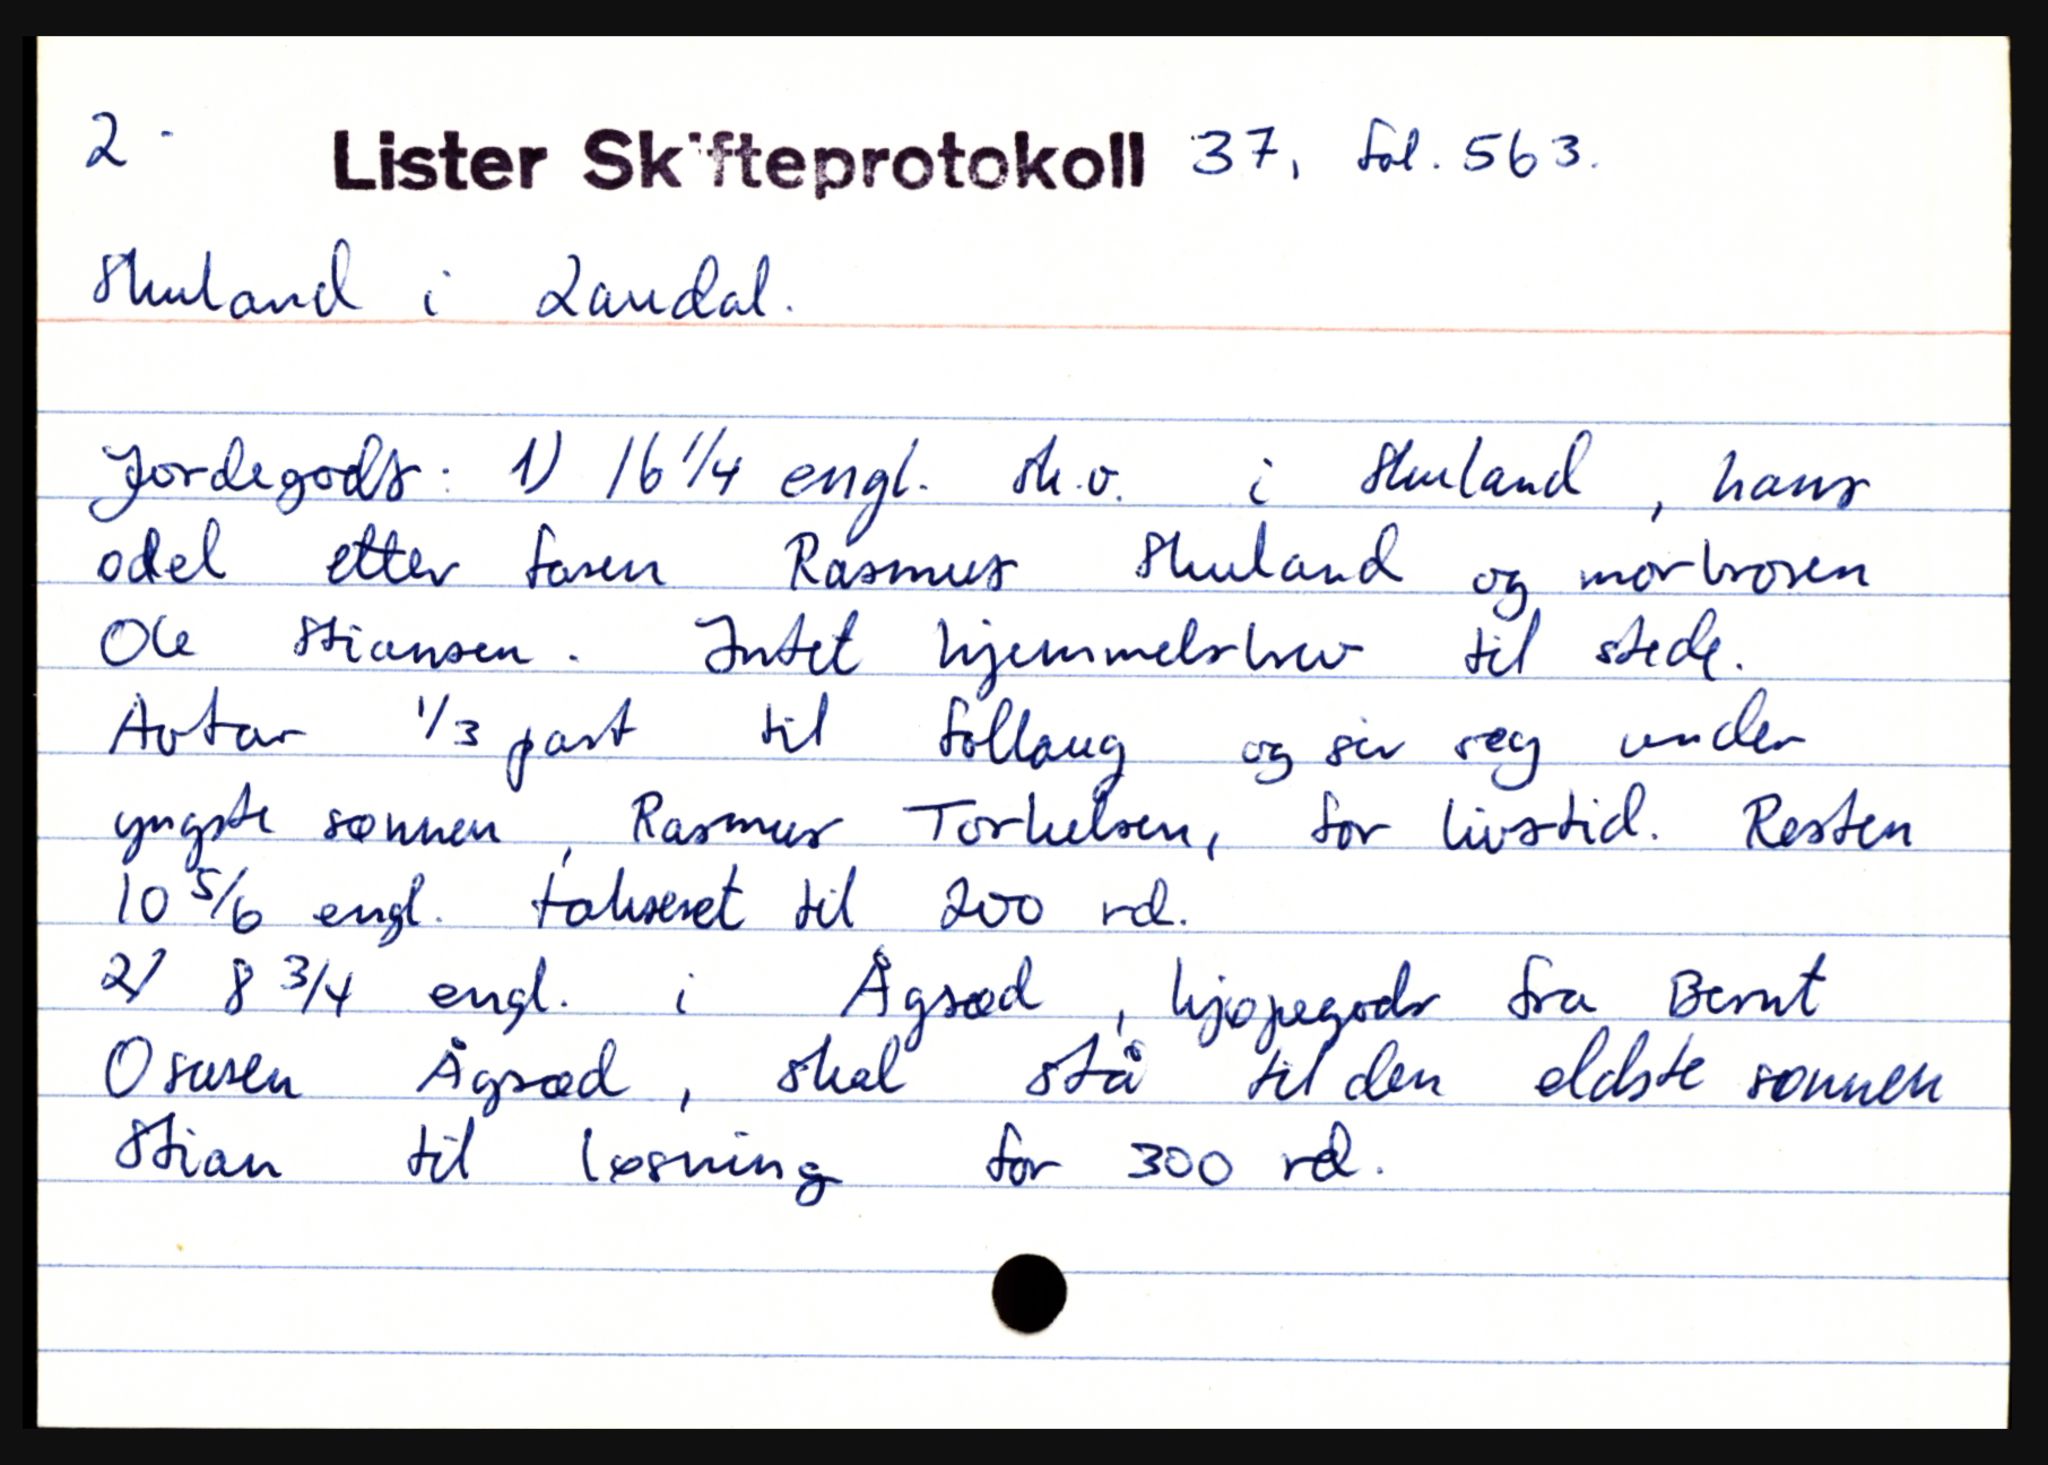 2 - Lister Skifteprotokoll 37, fol. 563.
Skuland i Laudal.
Jordegods: 1) 16 1/4 engl. sk.v. i Skuland, hans
odel etter faren Rasmus Skuland og morbroren
Ole Stiansen. Intet hjemmelsbrev til stede.
Avtar 1/3 part til follaug og sir seg under
yngste sønnen, Rasmus Torkelsen, for livstid. Resten
10 5/6 engl. takseret til 200 rd.
2/ 8 3/4 engl. i Ågsæd, kjøpegods fra Bernt
Osusen Ågsæd, skal stå til den eldste sønnen
Stian til løsning for 300 rd.